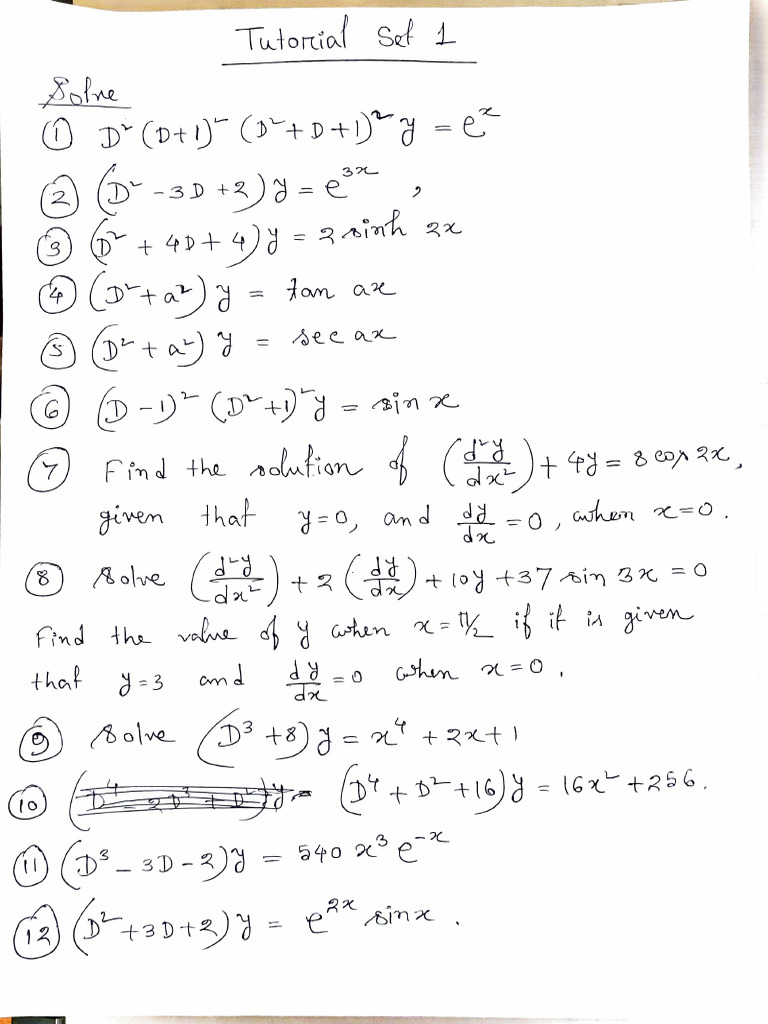 Tutorial Set 1
Solve
① D² (D+1)² (D²+D+1)² y = eˣ
② (D² -3D +2) y = e³ˣ ,
③ (D² + 4D + 4) y = 2 sinh 2x
④ (D²+a²) y = tan ax
⑤ (D²+a²) y = sec ax
⑥ (D-1)² (D²+1)² y = sin x
⑦ Find the solution of (d²y/dx²) + 4y = 8 cos 2x,
given that y=0, and dy/dx = 0, when x=0.
⑧ Solve (d²y/dx²) + 2 (dy/dx) + 10y + 37 sin 3x = 0
Find the value of y when x = π/2 if it is given
that y=3 and dy/dx = 0 when x=0.
⑨ Solve (D³ +8) y = x⁴ + 2x + 1
⑩ (D⁴ + D² +16) y = 16x² +256.
⑪ (D³ - 3D - 2) y = 540 x³ e⁻ˣ
⑫ (D² +3D+2) y = e²ˣ sin x .